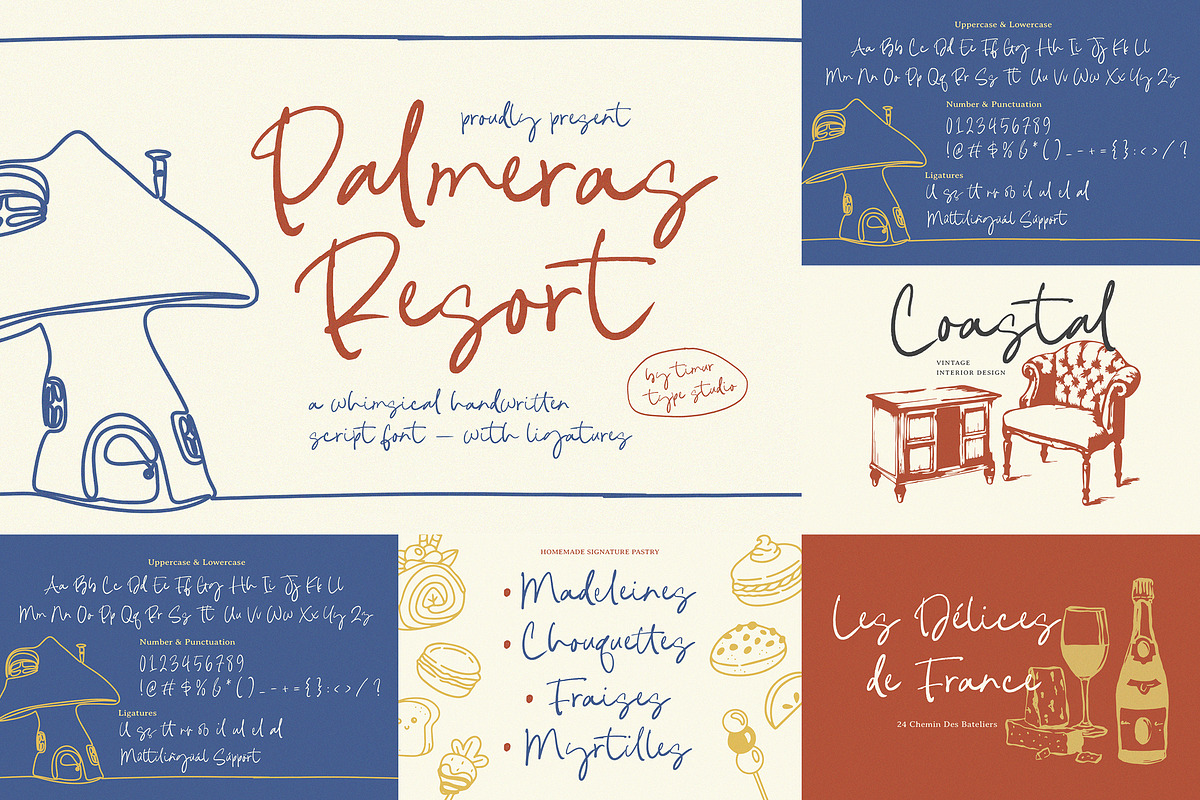 proudly present
Palmeras
Resort
by timur
type studio
a whimsical handwritten
script font — with ligatures
Uppercase & Lowercase
Aa Bb Cc Dd Ee Ff Gg Hh Ii Jj Kk Ll
Mm Nn Oo Pp Qq Rr Ss Tt Uu Vv Ww Xx Yy Zz
Number & Punctuation
0123456789
!@#$%&*()_-+={}:<>/?
Ligatures
ll ss tt rr ob il ul el al
Multilingual Support
Coastal
VINTAGE
INTERIOR DESIGN
Uppercase & Lowercase
Aa Bb Cc Dd Ee Ff Gg Hh Ii Jj Kk Ll
Mm Nn Oo Pp Qq Rr Ss Tt Uu Vv Ww Xx Yy Zz
Number & Punctuation
0123456789
!@#$%&*()_-+={}:<>/?
Ligatures
ll ss tt rr ob il ul el al
Multilingual Support
HOMEMADE SIGNATURE PASTRY
• Madeleines
• Chouquettes
• Fraises
• Myrtilles
Les Délices
de France
24 Chemin Des Bateliers